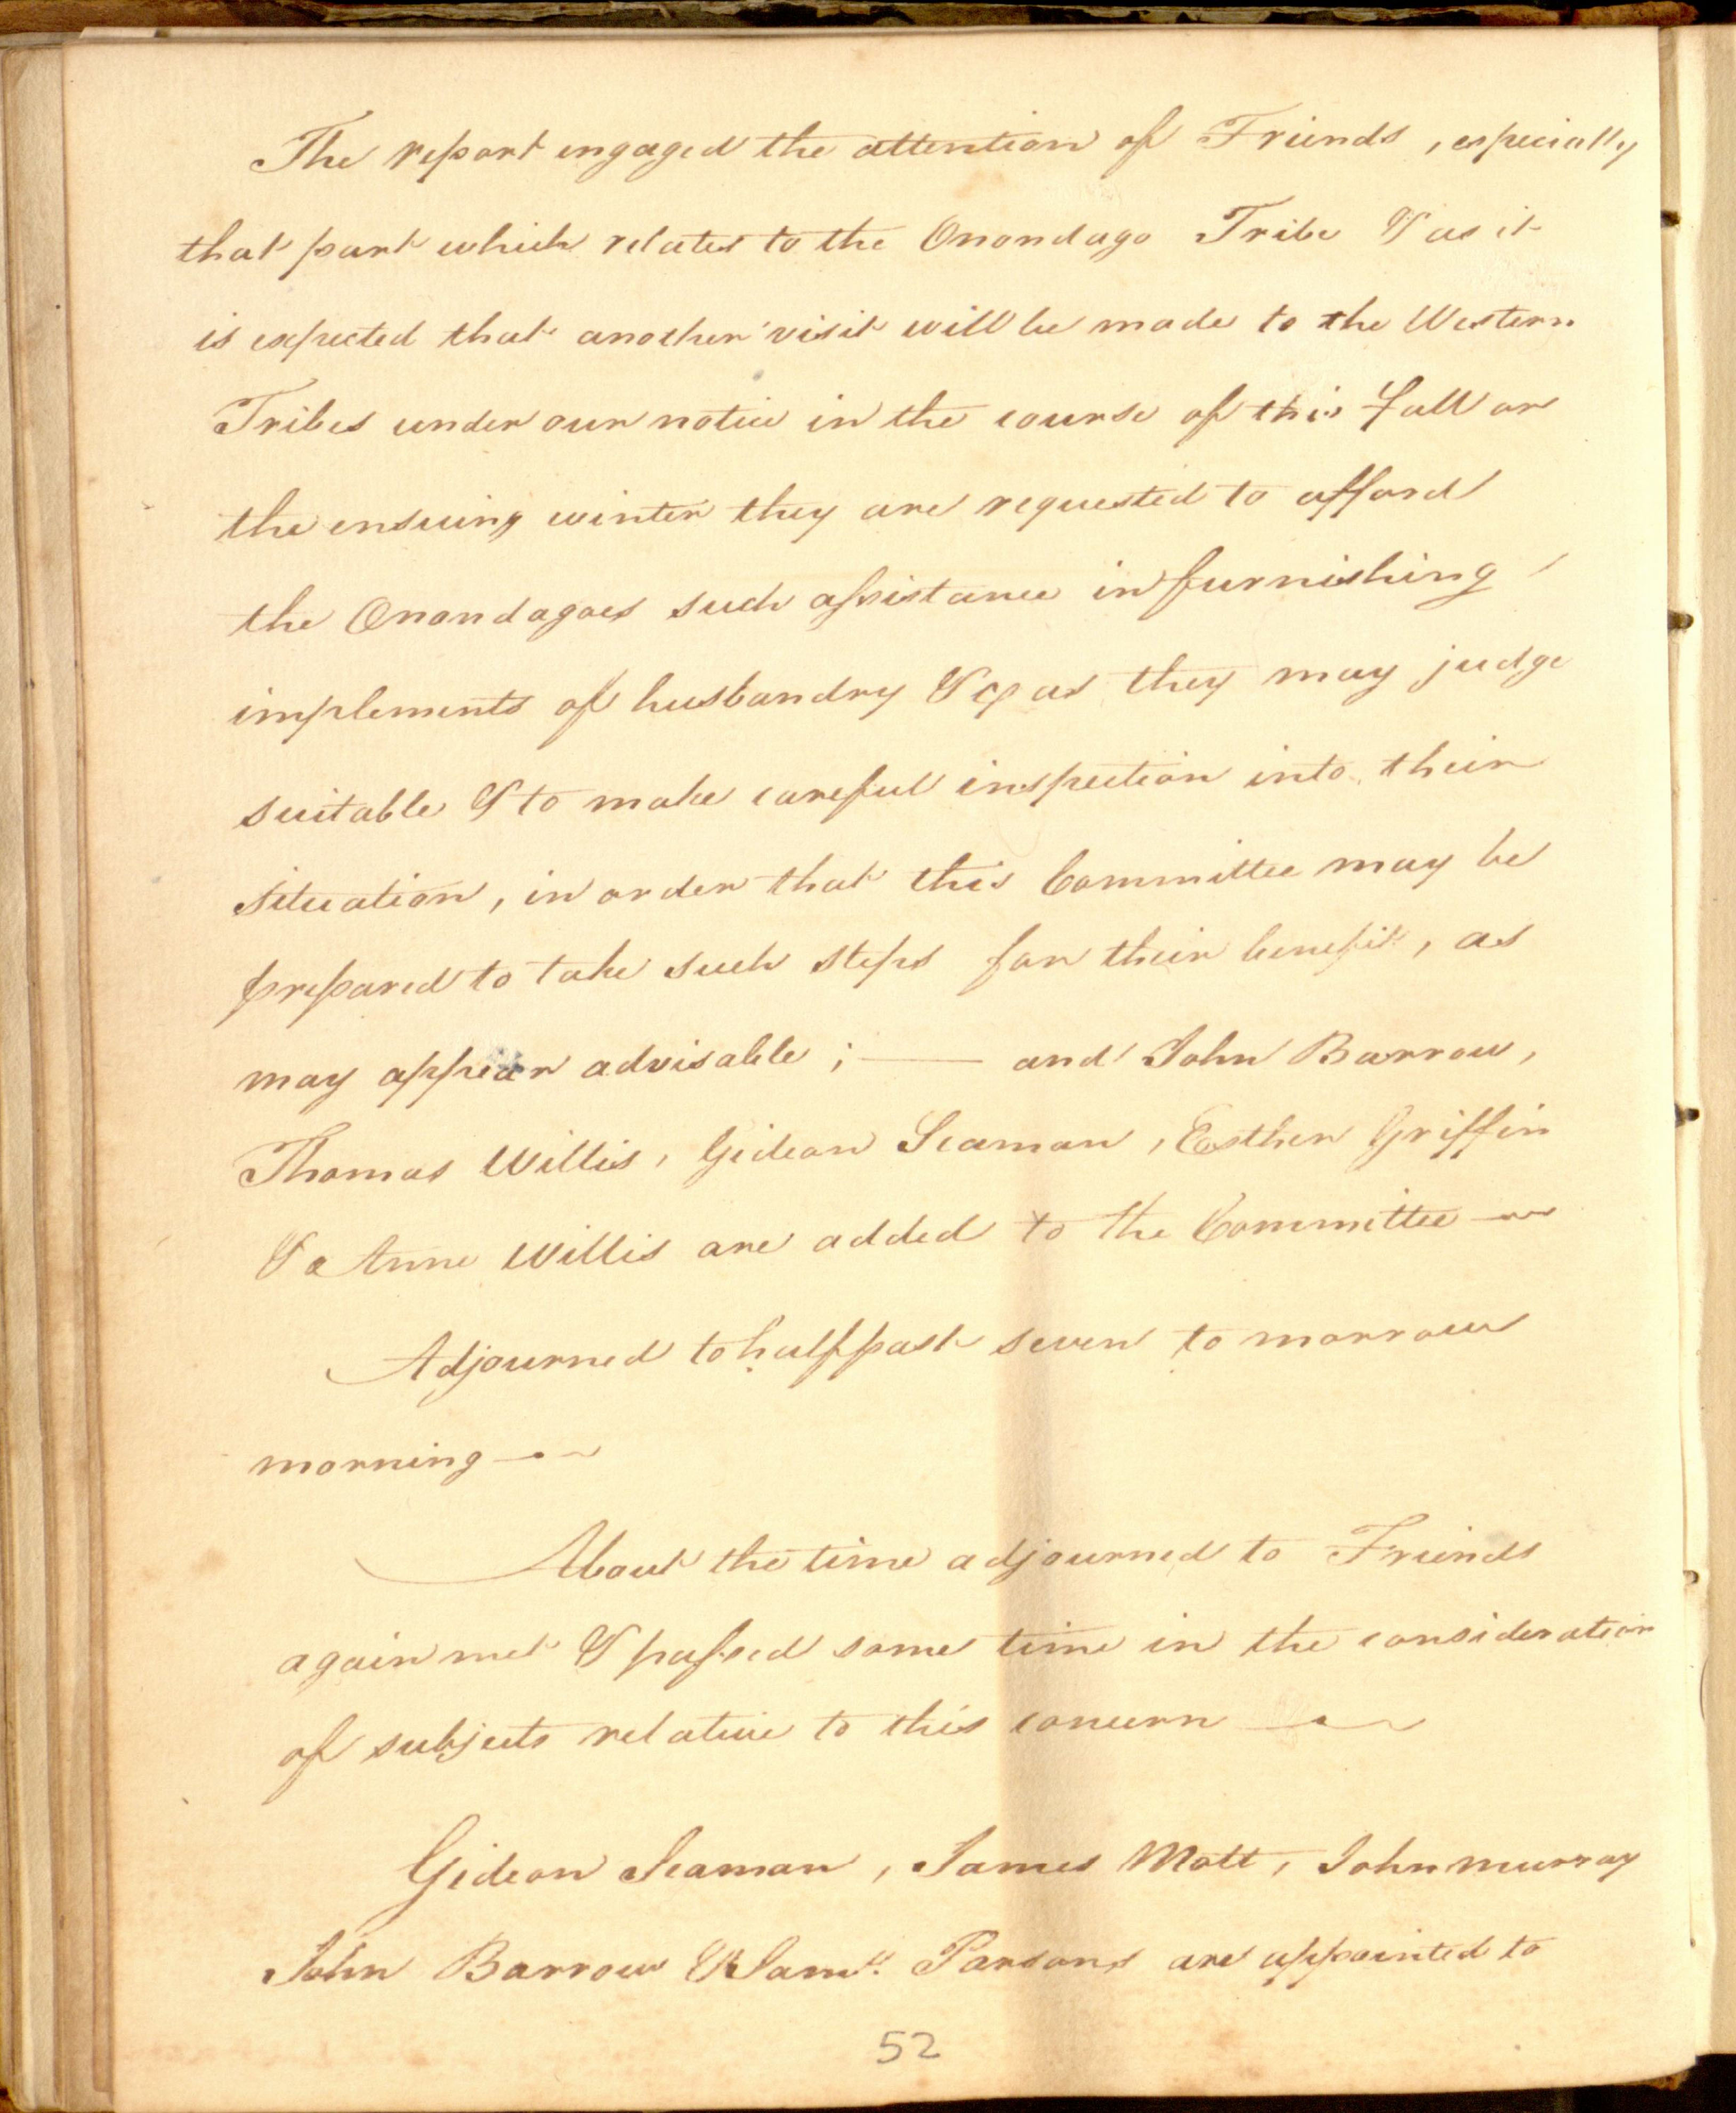 The report engaged the attention of Friends, especially
that part which relates to the Onondago Tribe & as it
is expected that another visit will be made to the Western
Tribes under our notice in the course of this Fall or
the ensuing winter they are requested to afford
the Onondagoes such assistance in furnishing
implements of husbandry &c as they may judge
suitable & to make careful inspection into their
situation, in order that this Committee may be
prepared to take such steps for their benefit, as
may appear advisable; — and John Barrow,
Thomas Willis, Gideon Seaman, Esther Griffin
& Anne Willis are added to the Committee —
Adjourned to half past seven to morrow
morning —
About the time adjourned to Friends
again met & passed some time in the consideration
of subjects relative to this concern —
Gideon Seaman, James Mott, John Murray
John Barrow & Saml. Parsons are appointed to
52